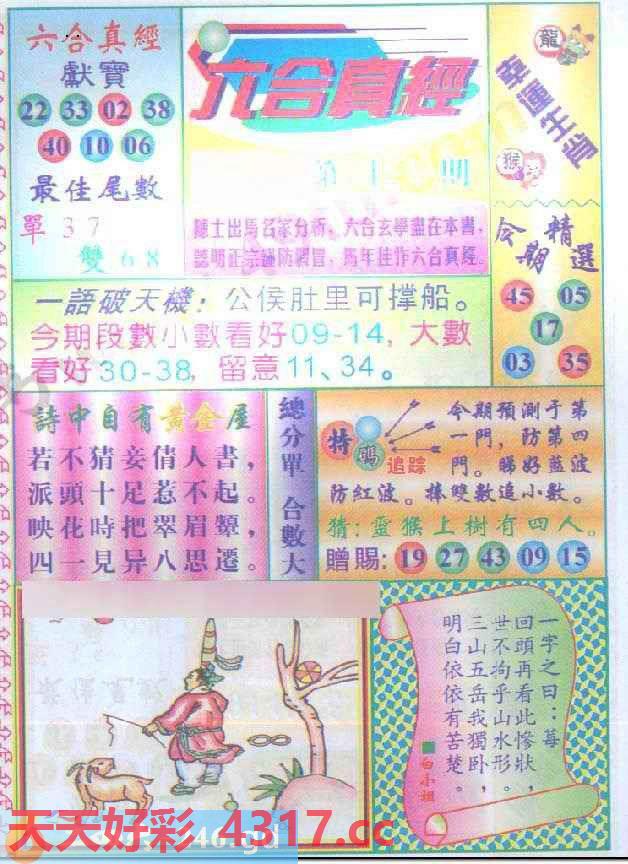 六合真經
獻寶
22 33 02 38
40 10 06
最佳尾數
單 3 7
雙 6 8
六合真經
第 期
龍
幸運生肖
猴
陳士出馬名家分析，六合玄學盡在本書，
六合真經。
一語破天機：公侯肚里可撑船。
今期段數小數看好09-14，大數
看好30-38，留意11、34。
今期精選
45 05
17
03 35
詩中自有黃金屋
若不猜妾倩人書，
派頭十足惹不起。
映花時把翠眉顰，
四一見异八思遷。
總分單 合數大
特碼
追踪
今期預測于第
一門，防第四
門。睇好藍波
防紅波。捧雙數追小數。
猜：靈猴上樹有四人。
贈賜：19 27 43 09 15
一字之曰：莓
回頭再看此慘狀，
世不拘乎山水形。
三山五岳我獨卧，
明白依依有苦楚。
白小姐
天天好彩 4317.cc
46.gd